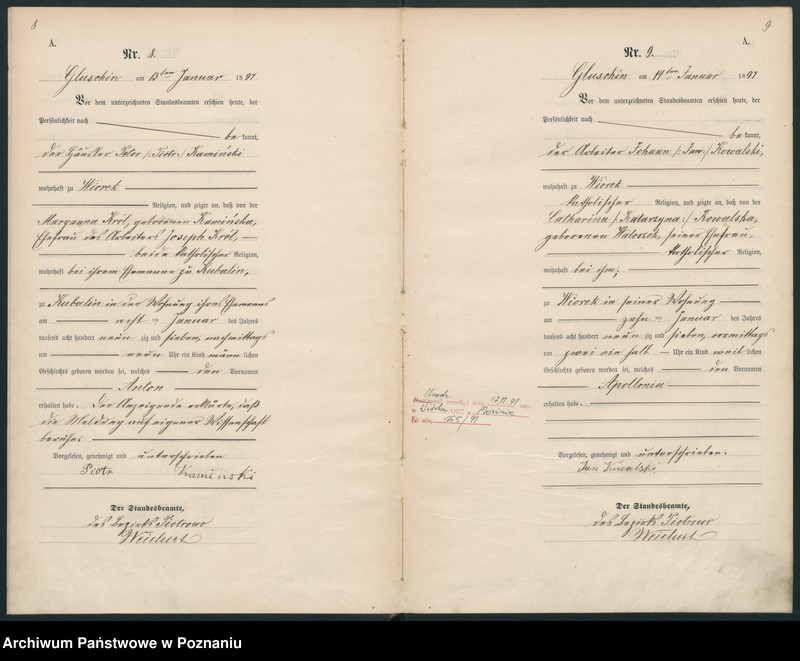 8
A.
Nr. 8.
Gluschin am 13ten Januar 1897
Vor dem unterzeichneten Standesbeamten erschien heute, der
Persönlichkeit nach
be kannt,
der Häusler Peter /: Piotr :/ Kamiński
wohnhaft zu Wiorek
Religion, und zeigte an, daß von der
Maryanna Król, geborenen Kamińska,
Ehefrau des Arbeiters Joseph Król,
beide katholischer Religion,
wohnhaft bei ihrem Ehemanne zu Kubalin,
zu Kubalin in der Wohnung ihres Ehemannes
am acht ten Januar des Jahres
tausend acht hundert neun zig und sieben, nachmittags
um neun Uhr ein Kind männ lichen
Geschlechts geboren worden sei, welches den Vornamen
Anton
erhalten habe. Der Anzeigende erklärte, daß
die Meldung auf eigener Wissenschaft
beruhe.
Vorgelesen, genehmigt und unterschrieben
Piotr Kamiński
Der Standesbeamte,
des Bezirks Piotrowo
Weichert
9
A.
Nr. 9.
Gluschin am 14ten Januar 1897
Vor dem unterzeichneten Standesbeamten erschien heute, der
Persönlichkeit nach
be kannt,
der Arbeiter Johann /: Jan :/ Kowalski,
wohnhaft zu Wiorek
katholischer Religion, und zeigte an, daß von der
Catharina /: Katarzyna :/ Kowalska,
geborenen seiner Ehefrau,
katholischer Religion,
wohnhaft bei ihm,
zu Wiorek in seiner Wohnung
am zehn ten Januar des Jahres
tausend acht hundert neun zig und sieben, vormittags
um zwei ein halb Uhr ein Kind weib lichen
Geschlechts geboren worden sei, welches den Vornamen
Apollonia
erhalten habe.
Vorgelesen, genehmigt und unterschrieben.
Jan Kowalski
Der Standesbeamte,
des Bezirks Piotrowo
Weichert
dnia
w USC Mosina
Nr akt. 165/91
Archiwum Państwowe w Poznaniu